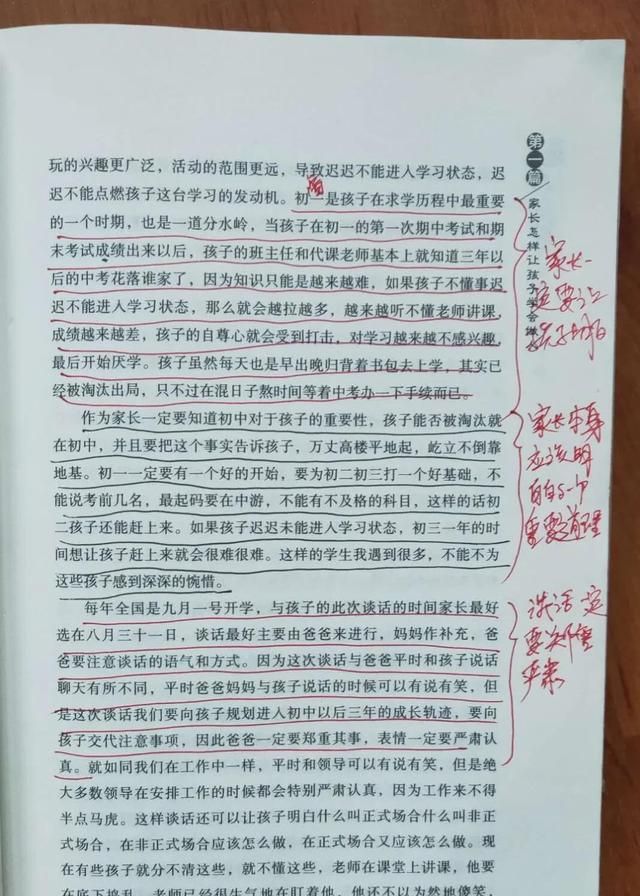 玩的兴趣更广泛，活动的范围更远，导致迟迟不能进入学习状态，迟
迟不能点燃孩子这台学习的发动机。初一是孩子在求学历程中最重要
的一个时期，也是一道分水岭，当孩子在初一的第一次期中考试和期
末考试成绩出来以后，孩子的班主任和代课老师基本上就知道三年以
后的中考花落谁家了，因为知识只能是越来越难，如果孩子不懂事迟
迟不能进入学习状态，那么就会越拉越多，越来越听不懂老师讲课，
成绩越来越差，孩子的自尊心就会受到打击，对学习越来越不感兴趣，
最后开始厌学。孩子虽然每天也是早出晚归背着书包去上学，其实已
经被淘汰出局，只不过在混日子熬时间等着中考办一下手续而已。
作为家长一定要知道初中对于孩子的重要性，孩子能否被淘汰就
在初中，并且要把这个事实告诉孩子，万丈高楼平地起，屹立不倒靠
地基。初一一定要有一个好的开始，要为初二初三打一个好基础，不
能说考前几名，最起码要在中游，不能有不及格的科目，这样的话初
二孩子还能赶上来。如果孩子迟迟未能进入学习状态，初三一年的时
间想让孩子赶上来就会很难很难。这样的学生我遇到很多，不能不为
这些孩子感到深深的惋惜。
每年全国是九月一号开学，与孩子的此次谈话的时间家长最好
选在八月三十一日，谈话最好主要由爸爸来进行，妈妈作补充，爸
爸要注意谈话的语气和方式。因为这次谈话与爸爸平时和孩子说话
聊天有所不同，平时爸爸妈妈与孩子说话的时候可以有说有笑，但
是这次谈话我们要向孩子规划进入初中以后三年的成长轨迹，要向
孩子交代注意事项，因此爸爸一定要郑重其事，表情一定要严肃认
真。就如同我们在工作中一样，平时和领导可以有说有笑，但是绝
大多数领导在安排工作的时候都会特别严肃认真，因为工作来不得
半点马虎。这样谈话还可以让孩子明白什么叫正式场合什么叫非正
式场合，在非正式场合应该怎么做，在正式场合又应该怎么做。现
在有些孩子就分不清这些，就不懂这些，老师在课堂上讲课，他要
在底下捣乱，老师已经很生气地在盯着他，他还不以为然地傻笑，
第一篇
家长怎样让孩子学会
家长一
定要让
孩子明白
家长本身
应该明
白的一个
重要道理
谈话一定
要郑重
严肃